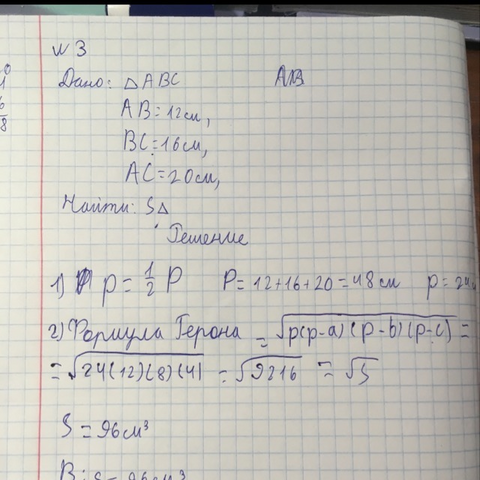 0
1
6
8
№3
Дано: △ABC AB
AB=12см,
BC=16см,
AC=20см,
Найти: S△
Решение
1) p=½P P=12+16+20=48см p=24
2) Формула Герона =√p(p-a)(p-b)(p-c) =
=√24(12)(8)(4) =√9216 =√S
S=96см³
В: S=96см³